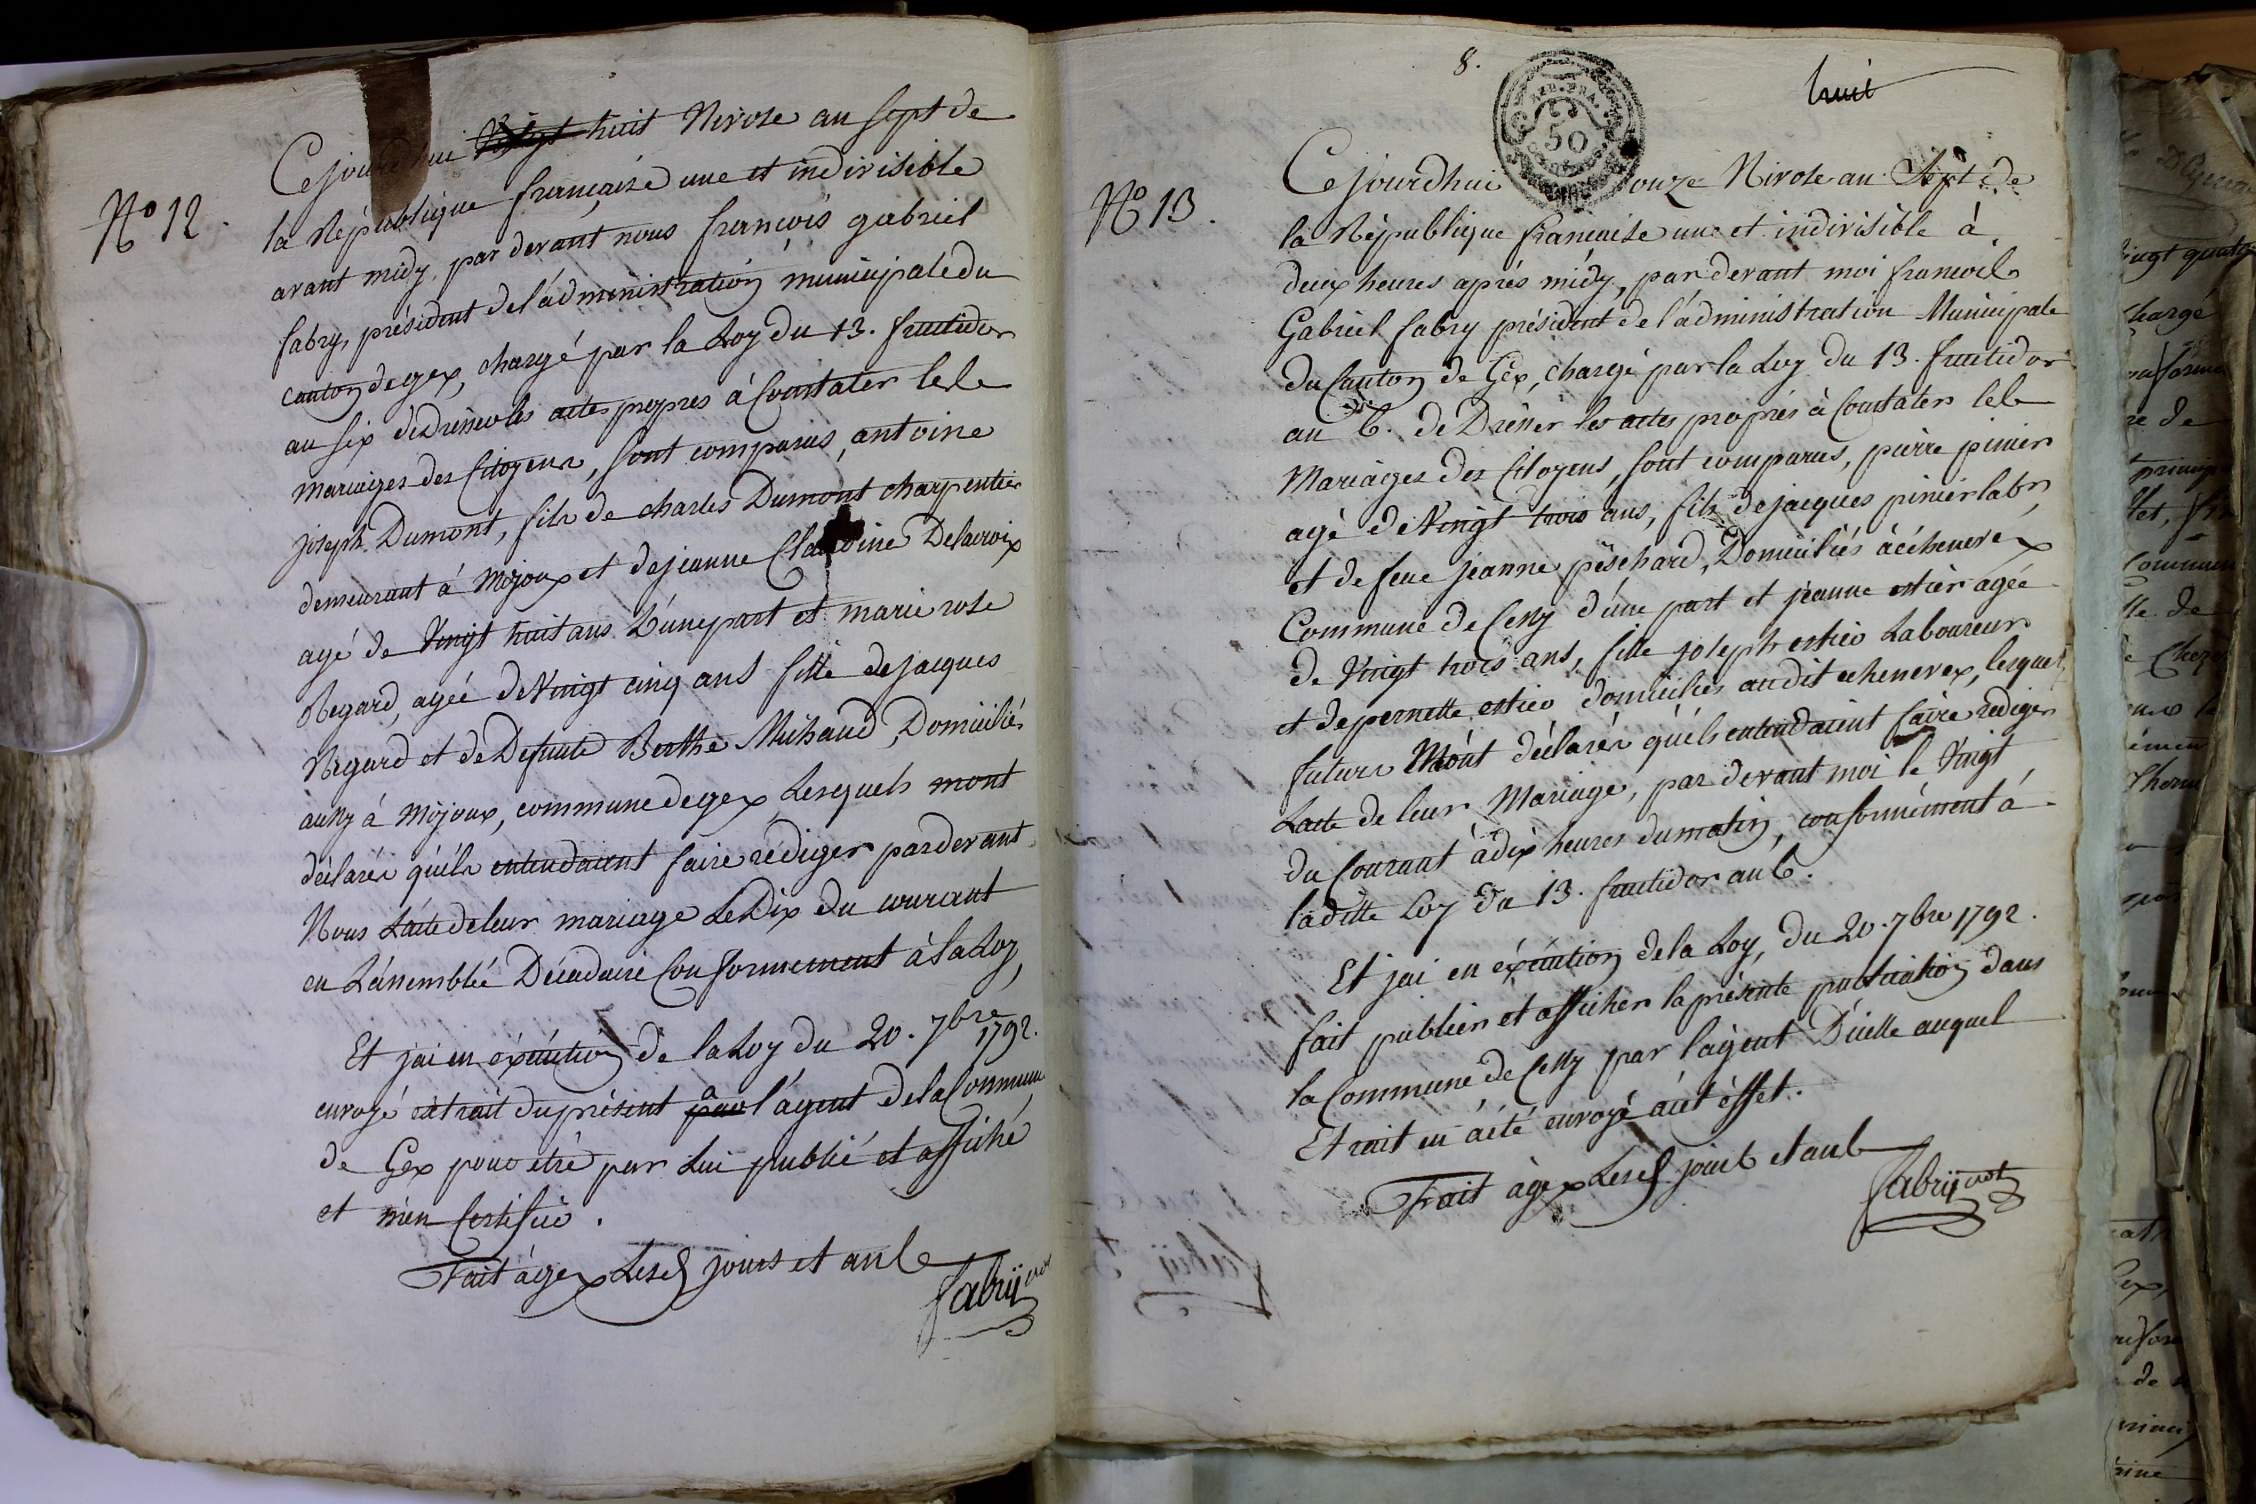 No 12.
Cejourd'hui Vingt huit Nivose an sept de
la République française une et indivisible
avant midy, par devant nous françois gabriel
fabry, président de l'administration municipale du
canton de gex, chargé par la Loy du 13. fructidor
an six de Dresser les actes propres à Constater les
mariages des Citoyens, sont comparus, antoine
joseph Dumont, fils de charles Dumont charpentier
demeurant à Mijoux et de jeanne Claudine Delacroix
agé de Vingt huit ans D'une part et marie rose
Regard, agée de Vingt cinq ans fille de jacques
Regard et de Defunte Berthe Michaud, Domiciliés
aussy à Mijoux, commune de gex Lesquels mont
déclarés quéls entendaient faire rediger par devant
Nous Lacte de leur mariage Le Dix du courant
en Lassemblée Décadaire Conformement à la Loy,
Et jai en éxécution de la Loy du 20. 7bre 1792.
envoyé extrait du présent a l'ágent de la Commune
de Gex pour etre par Lui publié et affiché
et mien Certifié.
Fait à gex Lesd jours et an
fabry
8.
huit
REP. FRA.
50
No 13.
Cejourdhui onze Nivose an Sept de
la République francaise une et indivisible à
deux heures aprés midy, par devant moi francois
Gabriel fabry président de l'administration Municipale
du Canton de Gex, chargé par la Loy du 13. fructidor
an 6. de Dresser les actes propres à Constater les
Mariages des Citoyens, sont comparus, pierre pinier
agé de Vingt trois ans, fils de jacques pinier labr,
et de feue jeanne peschard, Domiciliés à échenevex
Commune de Cessy d'une part et jeanne estier agée
de Vingt trois ans, fille joseph estier Laboureur
et de pernette estier domiciliés audit echenevex, lesquels
futurs Mont déclarés quéls entendaient faire rediger
Lacte de leur Mariage, par devant moi le Vingt
du Courant à dix heures du matin, conformément à
ladite Loy du 13. fructidor an 6.
Et jai en éxécution de la Loy, du 20. 7bre 1792.
fait publier et afficher la présente publication dans
la Commune de Cessy par l'agent D'icelle auquel
Extrait en a été envoyé a cet éffet.
Fait à gex Lesd jours et an
fabry